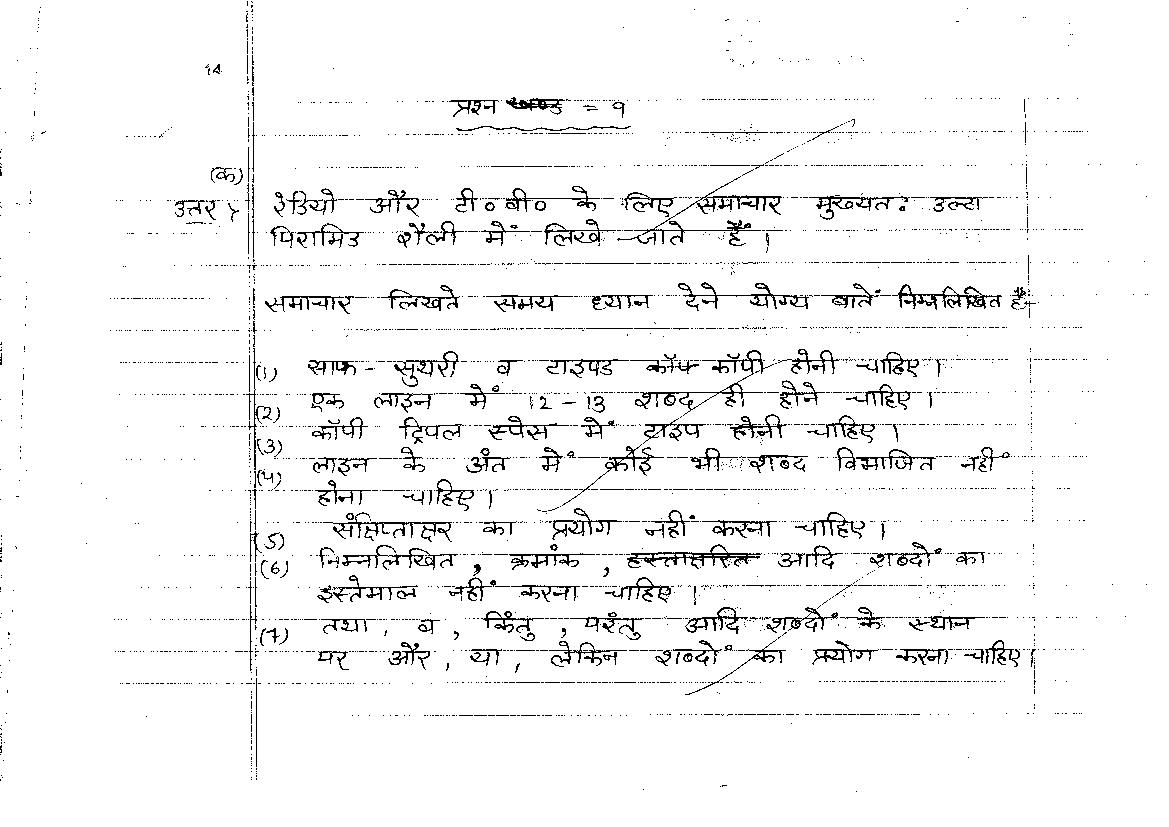 14
प्रश्न = ९
(क)
उत्तर > रेडियो और टी० बी० के लिए समाचार मुख्यत: उल्टा
पिरामिड शैली में लिखे जाते हैं।
समाचार लिखते समय ध्यान देने योग्य बातें निम्नलिखित हैं-
(1) साफ - सुथरी व टाइपड कॉफ कॉपी होनी चाहिए।
(2) एक लाइन में 12 - 13 शब्द ही होने चाहिए।
(3) कॉपी ट्रिपल स्पेस में टाइप होनी चाहिए।
(4) लाइन के अंत में कोई भी शब्द विभाजित नहीं
होना चाहिए।
(5) संक्षिप्ताक्षर का प्रयोग नहीं करना चाहिए।
(6) निम्नलिखित, क्रमांक, हस्ताक्षरित आदि शब्दों का
इस्तेमाल नहीं करना चाहिए।
(7) तथा, व, किंतु, परंतु आदि शब्दों के स्थान
पर और, या, लेकिन शब्दों का प्रयोग करना चाहिए।